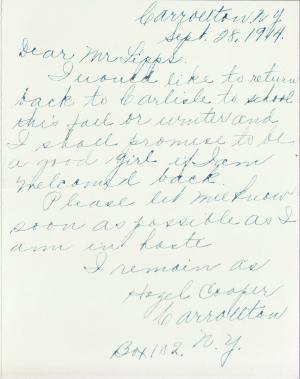 Carrollton, N.Y.
Sept. 28, 1914.
Dear Mr Lipps.
I would like to return
back to Carlisle to school
this fall or winter and
I shall promise to be
a good girl if I am
welcomed back.
Please let me know
soon as possible as I
am in haste
I remain as
Hazel Cooper
Carrollton
Box 102. N.Y.